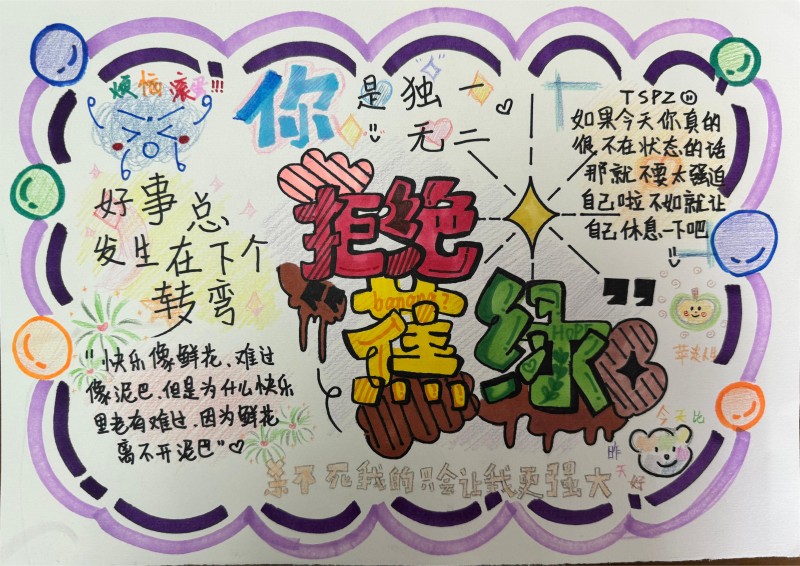 烦恼滚蛋!!!
你是独一
无二
TSPZ
如果今天你真的
很不在状态的话
那就不要太强迫
自己啦不如就让
自己休息一下吧
好事总
发生在下个
转弯
拒绝
"蕉绿"
banana?
HOPE
"快乐像鲜花,难过
像泥巴.但是为什么快乐
里老有难过.因为鲜花
离不开泥巴"
今天比
昨天好
杀不死我的只会让我更强大